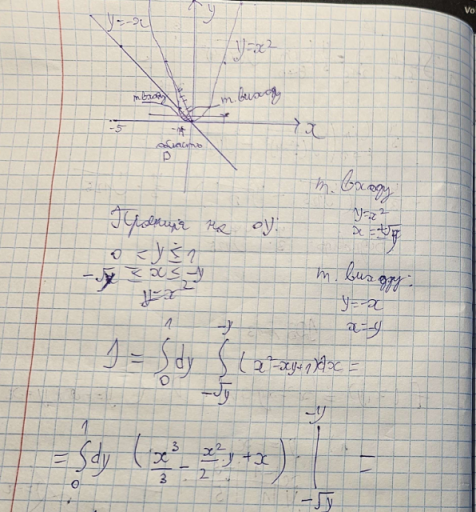 y=-x
y
y=x²
т. входу
т. виходу
x
-5
-1
область
D
т. входу
y=x²
x=-√y
Проекція на OY:
0 < y ≤ 1
-√y ≤ x ≤ -y
y=x²
т. виходу:
y=-x
x=-y
J = ∫₀¹ dy ∫_{-√y}^{-y} (x²-xy+1)dx =
= ∫₀¹ dy (x³/3 - x²/2 y + x) |_{-√y}^{-y} =